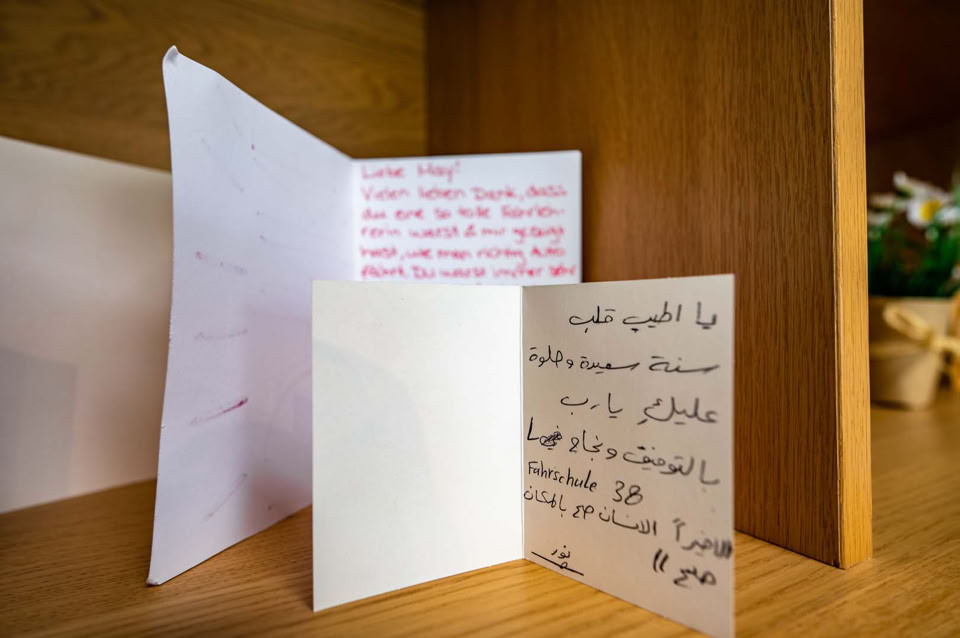 Liebe May!
Vielen lieben Dank, dass
du eine so tolle Fahrleh-
rerin warst & mir gezeigt
hast, wie man richtig Auto
fährt. Du warst immer sehr
يا اطيب قلب
سنة سعيدة وحلوة
عليكِ يارب
بالتوفيق ونجاح في
Fahrschule 38
الاخيراً الانسان صح بالمكان
صح !!
نور